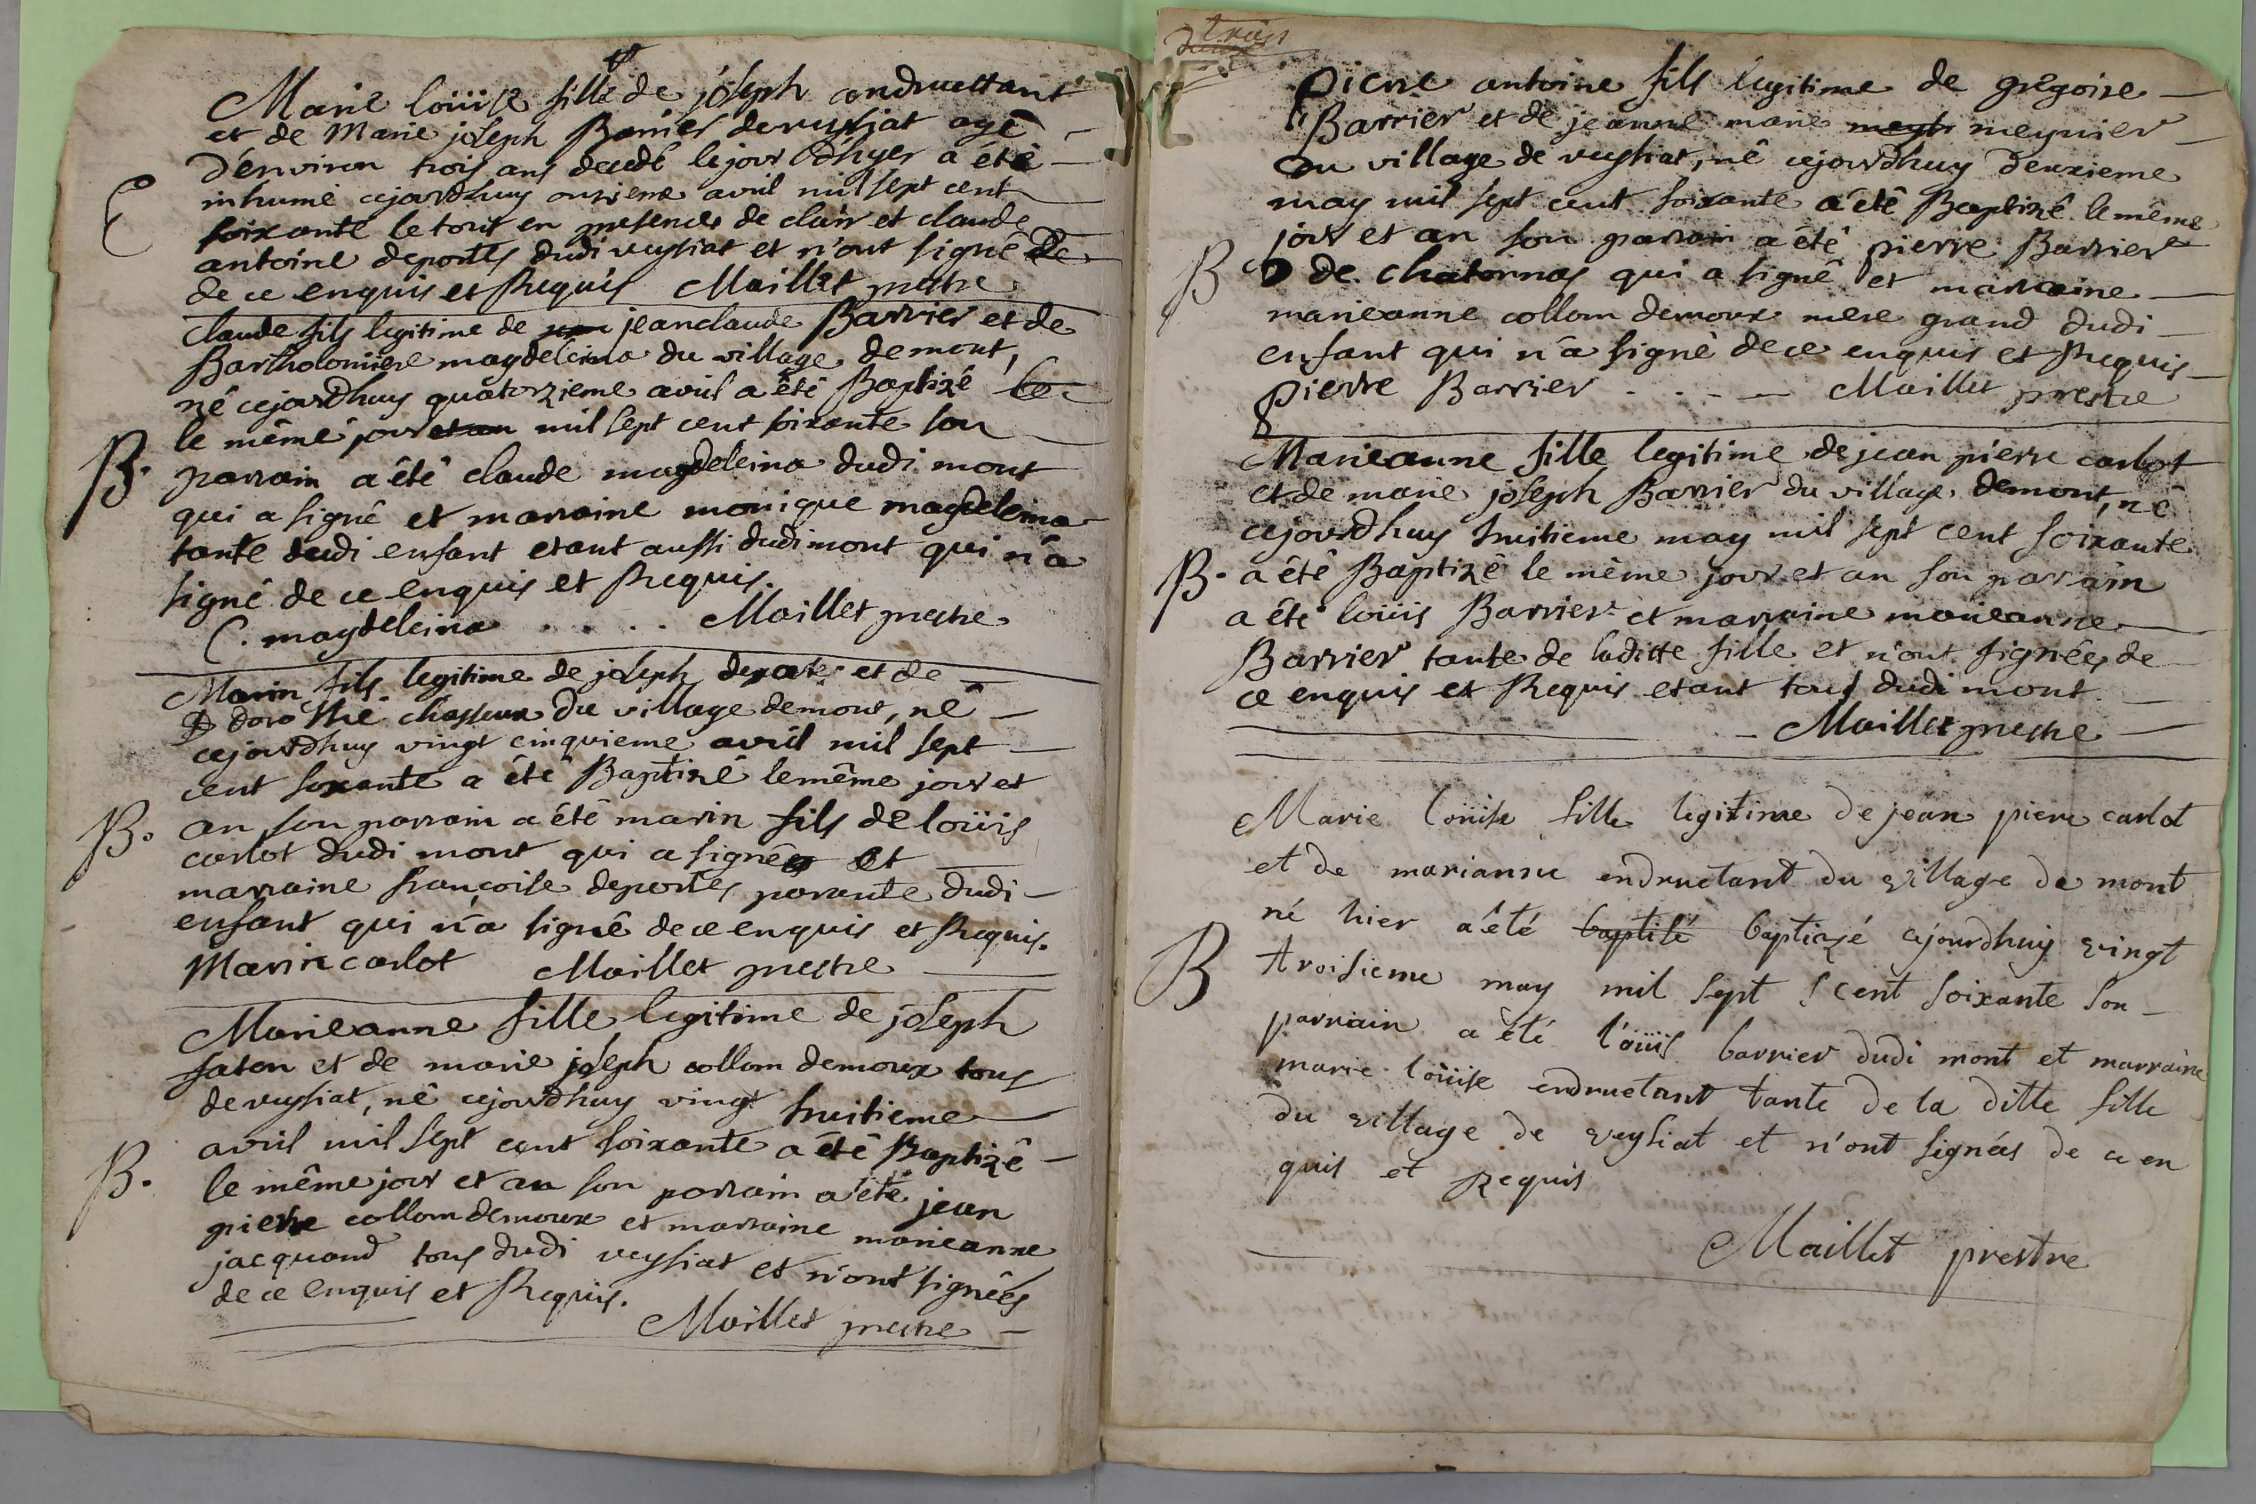 Marie loüise fille de joseph andruettant
et de Marie joseph Barrier de veysiat agé
d'environ trois ans decedé le jour d'hyer a été
inhumé cejourdhuy onzieme avril mil sept cent
soixante le tout en presence de clair et claude
antoine deportes dudi veysiat et n'ont signé de
de ce enquis et Requis Maillet prestre
claude fils legitime de jeanclaude Barrier et de
Bartholomiere magdeleina du village de mont,
né cejourdhuy quatorzieme avril a été Baptizé le
le même jour et an mil sept cent soixante son
B. parrain a été claude magdeleina dudi mont
qui a signé et marraine monique magdeleina
tante dudi enfant etant aussi dudi mont qui n'a
signé de ce enquis et Requis.
C. magdeleina . . . . . Maillet prestre
Marin fils legitime de joseph deportes et de
D dorothé chasseur du village demont, né
cejourdhuy vingt cinquieme avril mil sept
cent soxante a été Baptizé le même jour et
B. an son parrain a été marin fils de loüis
carlot dudi mont qui a signé et
marraine françoise deportes parante dudi
enfant qui n'a signé de ce enquis et Requis.
Marin carlot Maillet prestre
Marieanne fille legitime de joseph
faton et de marie joseph collom demoux tous
de veysiat, né cejourdhuy vingt huitieme
avril mil sept cent soixante a été Baptizé
B. le même jour et an son parrain a été jean
pierre collomdemoux et marraine marieanne
jacquand tous dudi veysiat et n'ont signéés
de ce enquis et Requis.
Maillet prestre
trois
pierre antoine fils legitime de gregoire
Barrier et de jeanne marie meynier
du village de veysiat, né cejourdhuy deuxieme
may mil sept cent soixante a été Baptizé le même
jour et an son parrain a été pierre Barrier
B de chatonnas qui a signé et marraine
marieanne collom demoux mere grand dudi
enfant qui n'a signé de ce enquis et Requis
pierre Barrier . . . . Maillet prestre
Marieanne fille legitime de jean pierre carlot
et de marie joseph Barrier du village demont, né
cejourdhuy huitieme may mil sept cent soixante
B. a été Baptizé le même jour et an son parrain
a été loüis Barrier et marraine marieanne
Barrier tante de laditte fille et n'ont signéés de
ce enquis et Requis etant tous dudi mont
Maillet prestre
Marie loüise fille legitime de jean piere carlot
et de marianne endruetant du village de mont
né hier a été baptisé baptizé cejourdhuy vingt
B troisieme may mil sept cent soixante son
parrain a été l'oüis barrier dudi mont et marraine
marie loüise endruetant tante de la ditte fille
du village de veysiat et n'ont signéés de ce en
quis et Requis
Maillet prestre